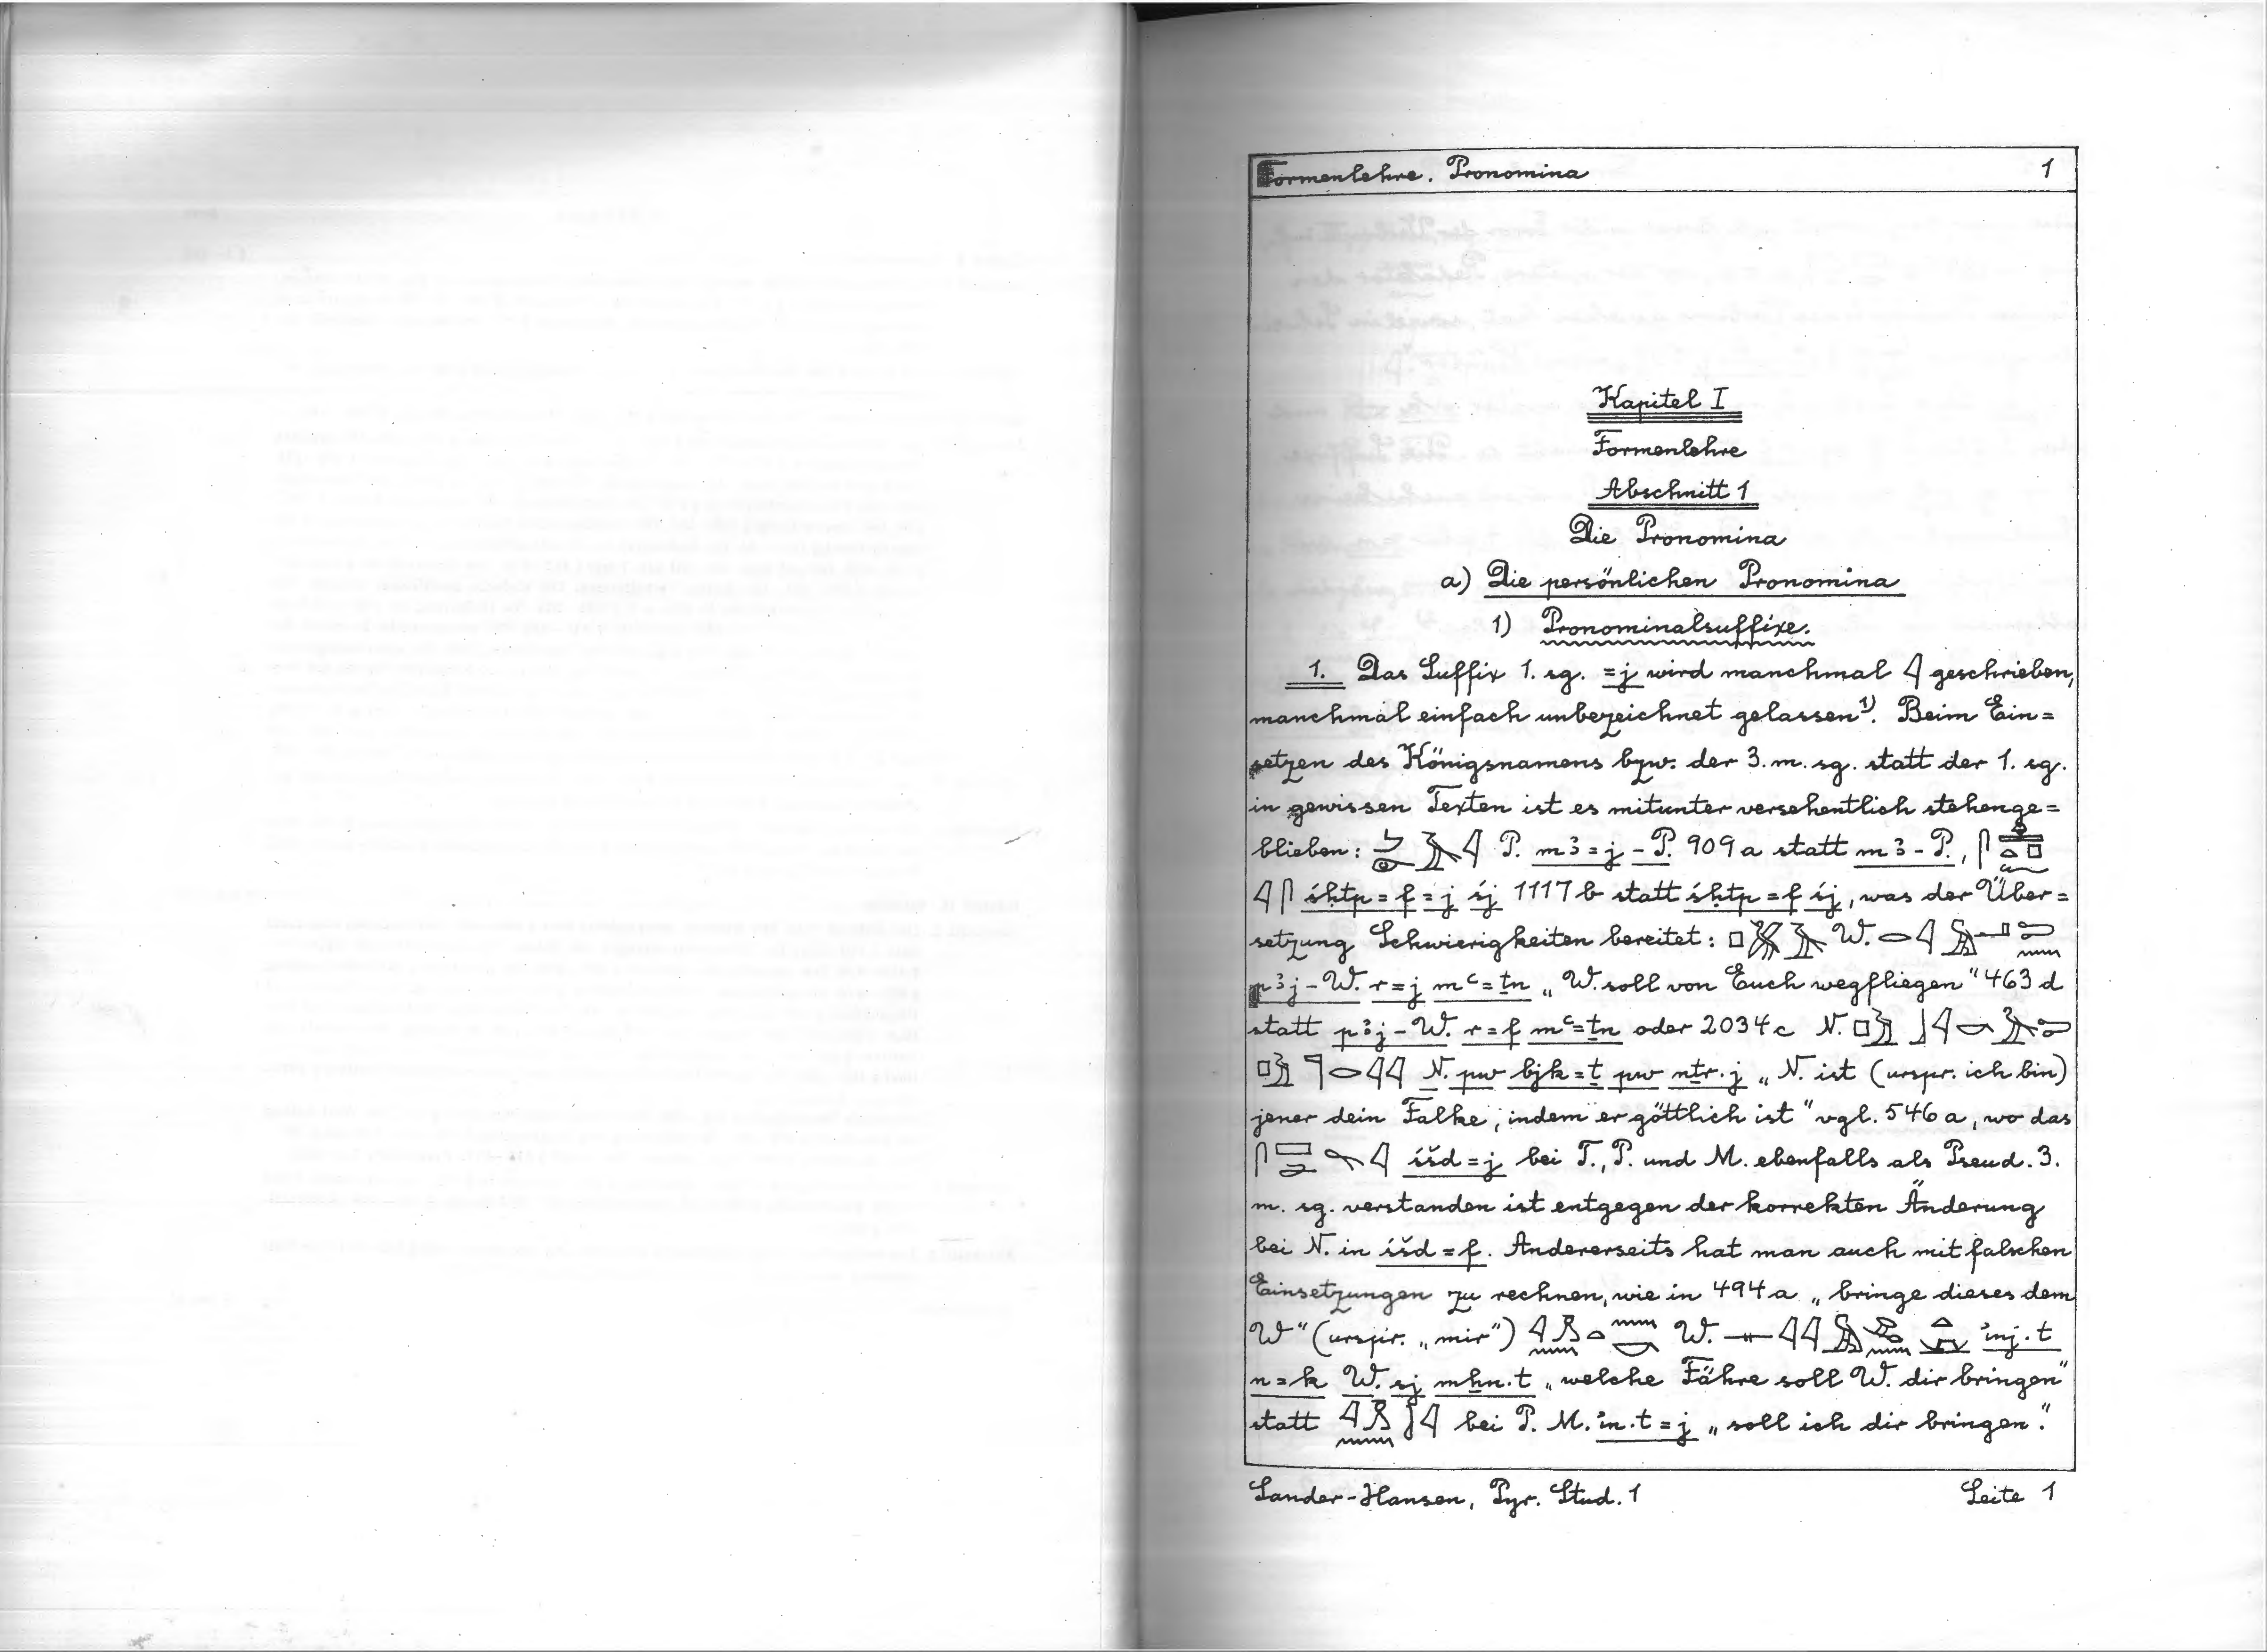 Formenlehre. Pronomina 1
Kapitel I
Formenlehre
Abschnitt 1
Die Pronomina
a) Die persönlichen Pronomina
1) Pronominalsuffixe.
1. Das Suffix 1. sg. =j wird manchmal 𓇋 geschrieben,
manchmal einfach unbezeichnet gelassen¹⁾. Beim Ein=
setzen des Königsnamens bzw. der 3. m. sg. statt der 1. sg.
in gewissen Texten ist es mitunter versehentlich stehenge=
blieben: P. mꜣ=j-P. 909a statt mꜣ-P.,
𓇋𓋴 śḥtp=f=j śj 1117b statt śḥtp=f śj, was der Über=
setzung Schwierigkeiten bereitet: W.
pꜣj-W. r=j mꜥ=ṯn „W. soll von Euch wegfliegen" 463d
statt pꜣj-W. r=f mꜥ=ṯn oder 2034c N.
N. pw bjk=ṯ pw nṯr.j „N. ist (urspr. ich bin)
jener dein Falke, indem er göttlich ist" vgl. 546a, wo das
śšd=j bei T., P. und M. ebenfalls als Pseud. 3.
m. sg. verstanden ist entgegen der korrekten Änderung
bei N. in śšd=f. Andererseits hat man auch mit falschen
Einsetzungen zu rechnen, wie in 494a „bringe dieses dem
W" (urspr. „mir") W. ỉnj.t
n=k W. sj mẖn.t „welche Fähre soll W. dir bringen"
statt bei P. M. ỉn.t=j „soll ich dir bringen".
Sander-Hansen, Pyr. Stud. 1 Seite 1